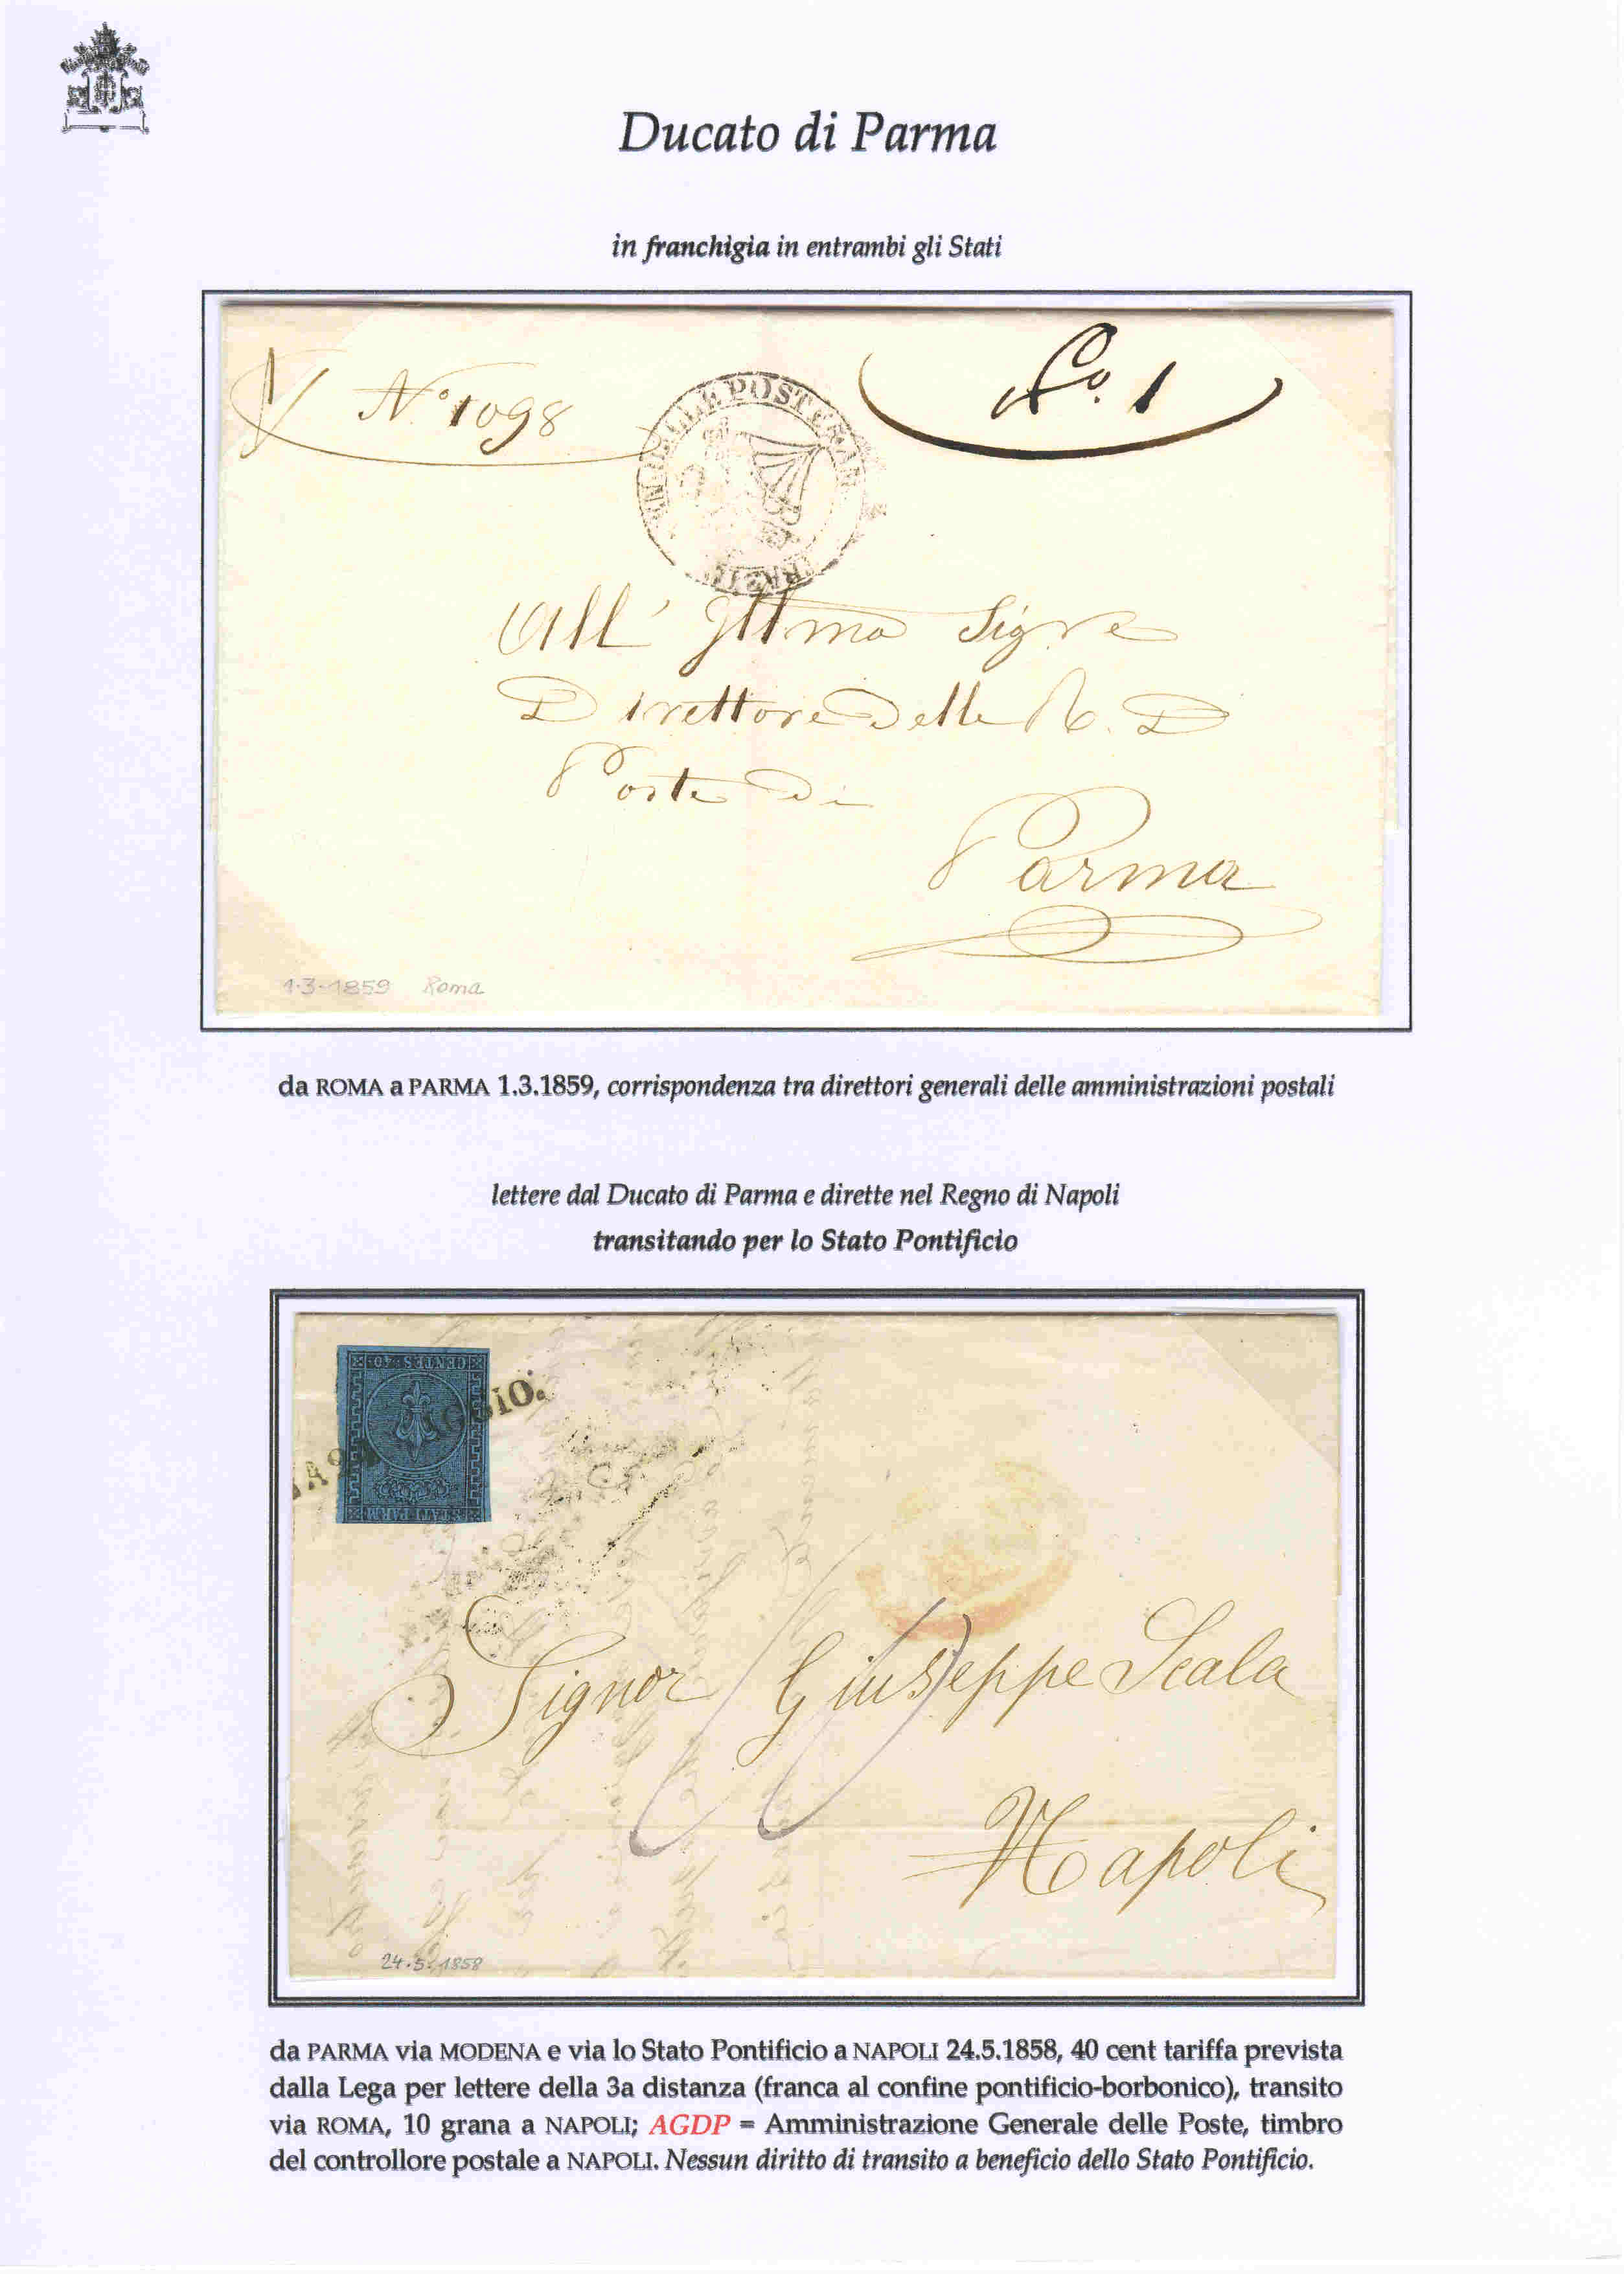 Ducato di Parma
in franchigia in entrambi gli Stati
N.º 1098
Nº. 1
DELLE POSTE
All' Illmo Sigre
Direttore Delle R. D
Poste Di
Parma
1-3-1859 Roma
da ROMA a PARMA 1.3.1859, corrispondenza tra direttori generali delle amministrazioni postali
lettere dal Ducato di Parma e dirette nel Regno di Napoli
transitando per lo Stato Pontificio
CENTES: 40
STATI PARM
Signor Giuseppe Scala
Napoli
24.5.1858
da PARMA via MODENA e via lo Stato Pontificio a NAPOLI 24.5.1858, 40 cent tariffa prevista
dalla Lega per lettere della 3a distanza (franca al confine pontificio-borbonico), transito
via ROMA, 10 grana a NAPOLI; AGDP = Amministrazione Generale delle Poste, timbro
del controllore postale a NAPOLI. Nessun diritto di transito a beneficio dello Stato Pontificio.